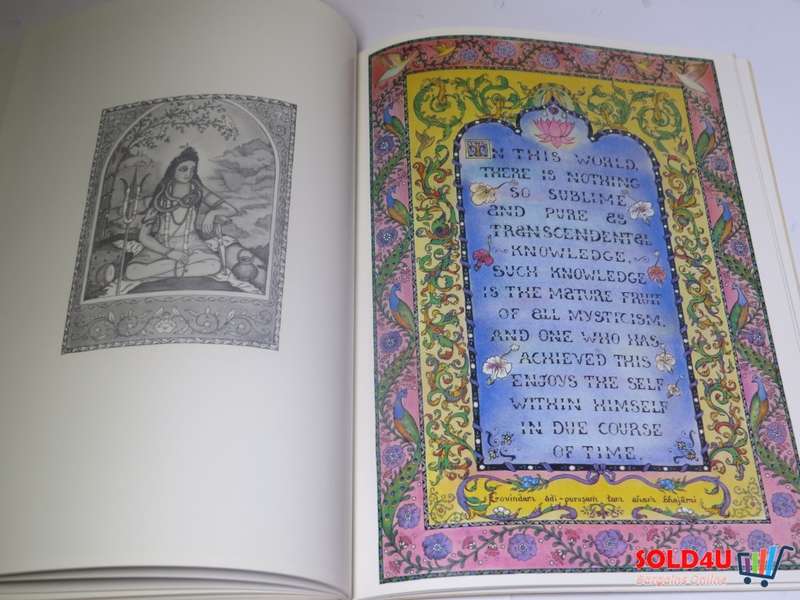 IN THIS WORLD,
THERE IS NOTHING
SO SUBLIME
AND PURE AS
TRANSCENDENTAL
KNOWLEDGE.
SUCH KNOWLEDGE
IS THE MATURE FRUIT
OF ALL MYSTICISM.
AND ONE WHO HAS
ACHIEVED THIS
ENJOYS THE SELF
WITHIN HIMSELF
IN DUE COURSE
OF TIME.
Govindam ādi-puruṣaṁ tam ahaṁ bhajāmi
SOLD4U
Bargains Online